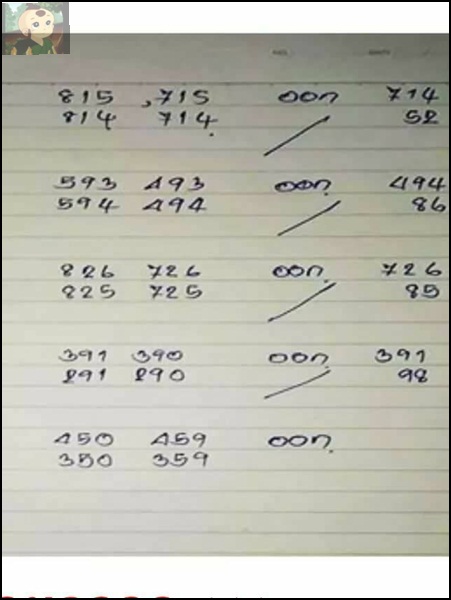 815 , 715 ออก 714
814 714 52
593 493 ออก 494
594 494 86
826 726 ออก 726
825 725 85
391 390 ออก 391
291 290 98
450 459 ออก
350 359